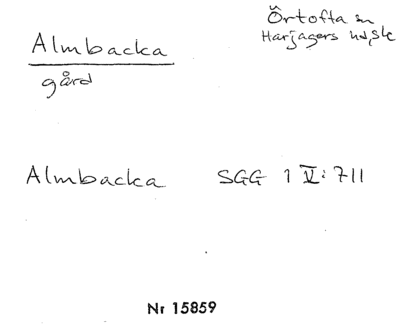 Almbacka
gård
Örtofta sn
Harjagers hd, Sk
Almbacka SGG 1 V: 711
Nr 15859